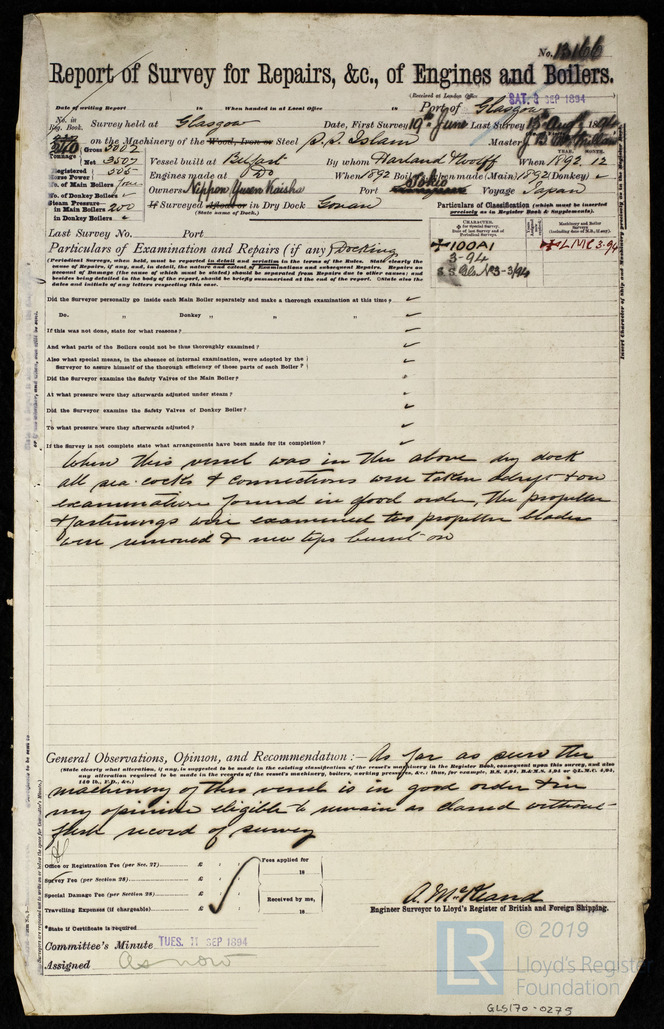 No. 13166
Report of Survey for Repairs, &c., of Engines and Boilers.
(Received at London Office SAT. 8 SEP 1894
Date of writing Report 18 When handed in at Local Office 18 Port of Glasgow
No. in Reg. Book. Survey held at Glasgow Date, First Survey 19th June Last Survey 1894
on the Machinery of the Wood, Iron or Steel S.S. Islam Master
Tonnage Gross 5402
Net 3507 Vessel built at Belfast By whom Harland & Wolff When 1892. 12
YEAR. MONTH.
Registered Horse Power 505 Engines made at Do When 1892 Boilers, when made (Main) 1892 (Donkey) ✓
No. of Main Boilers four Owners Nippon Yusen Kaisha Port Tokio Voyage Japan
No. of Donkey Boilers ✓
Steam Pressure in Main Boilers 200 If Surveyed Afloat or in Dry Dock Govan
in Donkey Boilers ✓ (State name of Dock.)
Particulars of Classification (which must be inserted precisely as in Register Book & Supplements).
Last Survey No. Port
CHARACTER. Machinery and Boiler Surveys
✠100A1 ✠LMC 3.94
3-94
S.S. Gls. No 3-3/94
Particulars of Examination and Repairs (if any) Docking
(Periodical Surveys, when held, must be reported in detail and seriatim in the terms of the Rules. State clearly the
cause of Repairs, if any, and, in detail, the nature and extent of Examinations and subsequent Repairs. Repairs on
account of Damage (the cause of which must be stated) should be separated from Repairs due to other causes; and
besides being detailed in the body of the report, should be briefly summarised at the end of the report. State also the
dates and initials of any letters respecting this case.
Did the Surveyor personally go inside each Main Boiler separately and make a thorough examination at this time? ✓
Do. „ Donkey „ „ „ ? ✓
If this was not done, state for what reasons? ✓
And what parts of the Boilers could not be thus thoroughly examined? ✓
Also what special means, in the absence of internal examination, were adopted by the
Surveyor to assure himself of the thorough efficiency of those parts of each Boiler? ✓
Did the Surveyor examine the Safety Valves of the Main Boiler?
At what pressure were they afterwards adjusted under steam? ✓
Did the Surveyor examine the Safety Valves of Donkey Boiler? ✓
To what pressure were they afterwards adjusted? ✓
If the Survey is not complete state what arrangements have been made for its completion? ✓
When this vessel was in the above dry dock
all sea cocks & connections were taken adrift & on
examination found in good order, the propeller
& fastenings were examined two propeller blades
were removed & new tips burnt-on
General Observations, Opinion, and Recommendation:— As far as seen the
(State clearly what alteration, if any, is suggested to be made in the existing classification of the vessel's machinery in the Register Book, consequent upon this survey, and also
any alteration required to be made in the records of the vessel's machinery, boilers, working pressure, &c.; thus, for example, B.S. 4,94, B.&M.S. 4,94 or Q.L.M.C. 4,94,
140 lb., F.D., &c.)
machinery of this vessel is in good order & in
my opinion eligible to remain as classed without
fresh record of survey
Office or Registration Fee (per Sec. 27) £ : : Fees applied for
Survey Fee (per Section 28) £ : : 18
Special Damage Fee (per Section 28) £ : : Received by me,
Travelling Expenses (if chargeable) £ : : 18
A. McKeand
Engineer Surveyor to Lloyd's Register of British and Foreign Shipping.
*State if Certificate is required
Committee's Minute TUES. 11 SEP 1894
Assigned As now
LR © 2019
Lloyd's Register
Foundation
GLS170-0275